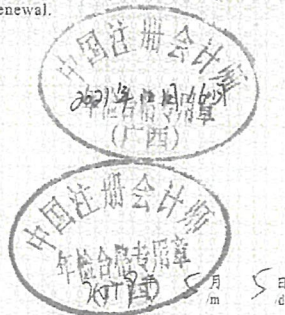 enewal.
中国注册会计师
2021年
年检合格专用章
(广西)
中国注册会计师
年检合格专用章
5月 5日
/m /d